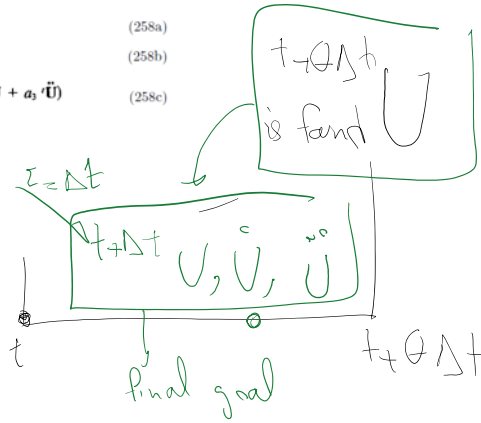 (258a)
(258b)
+ a₃ ᵗÜ)
(258c)
t+θΔt
is found U
τ=Δt
t+Δt U, U̇, Ü
t
t+θΔt
final goal